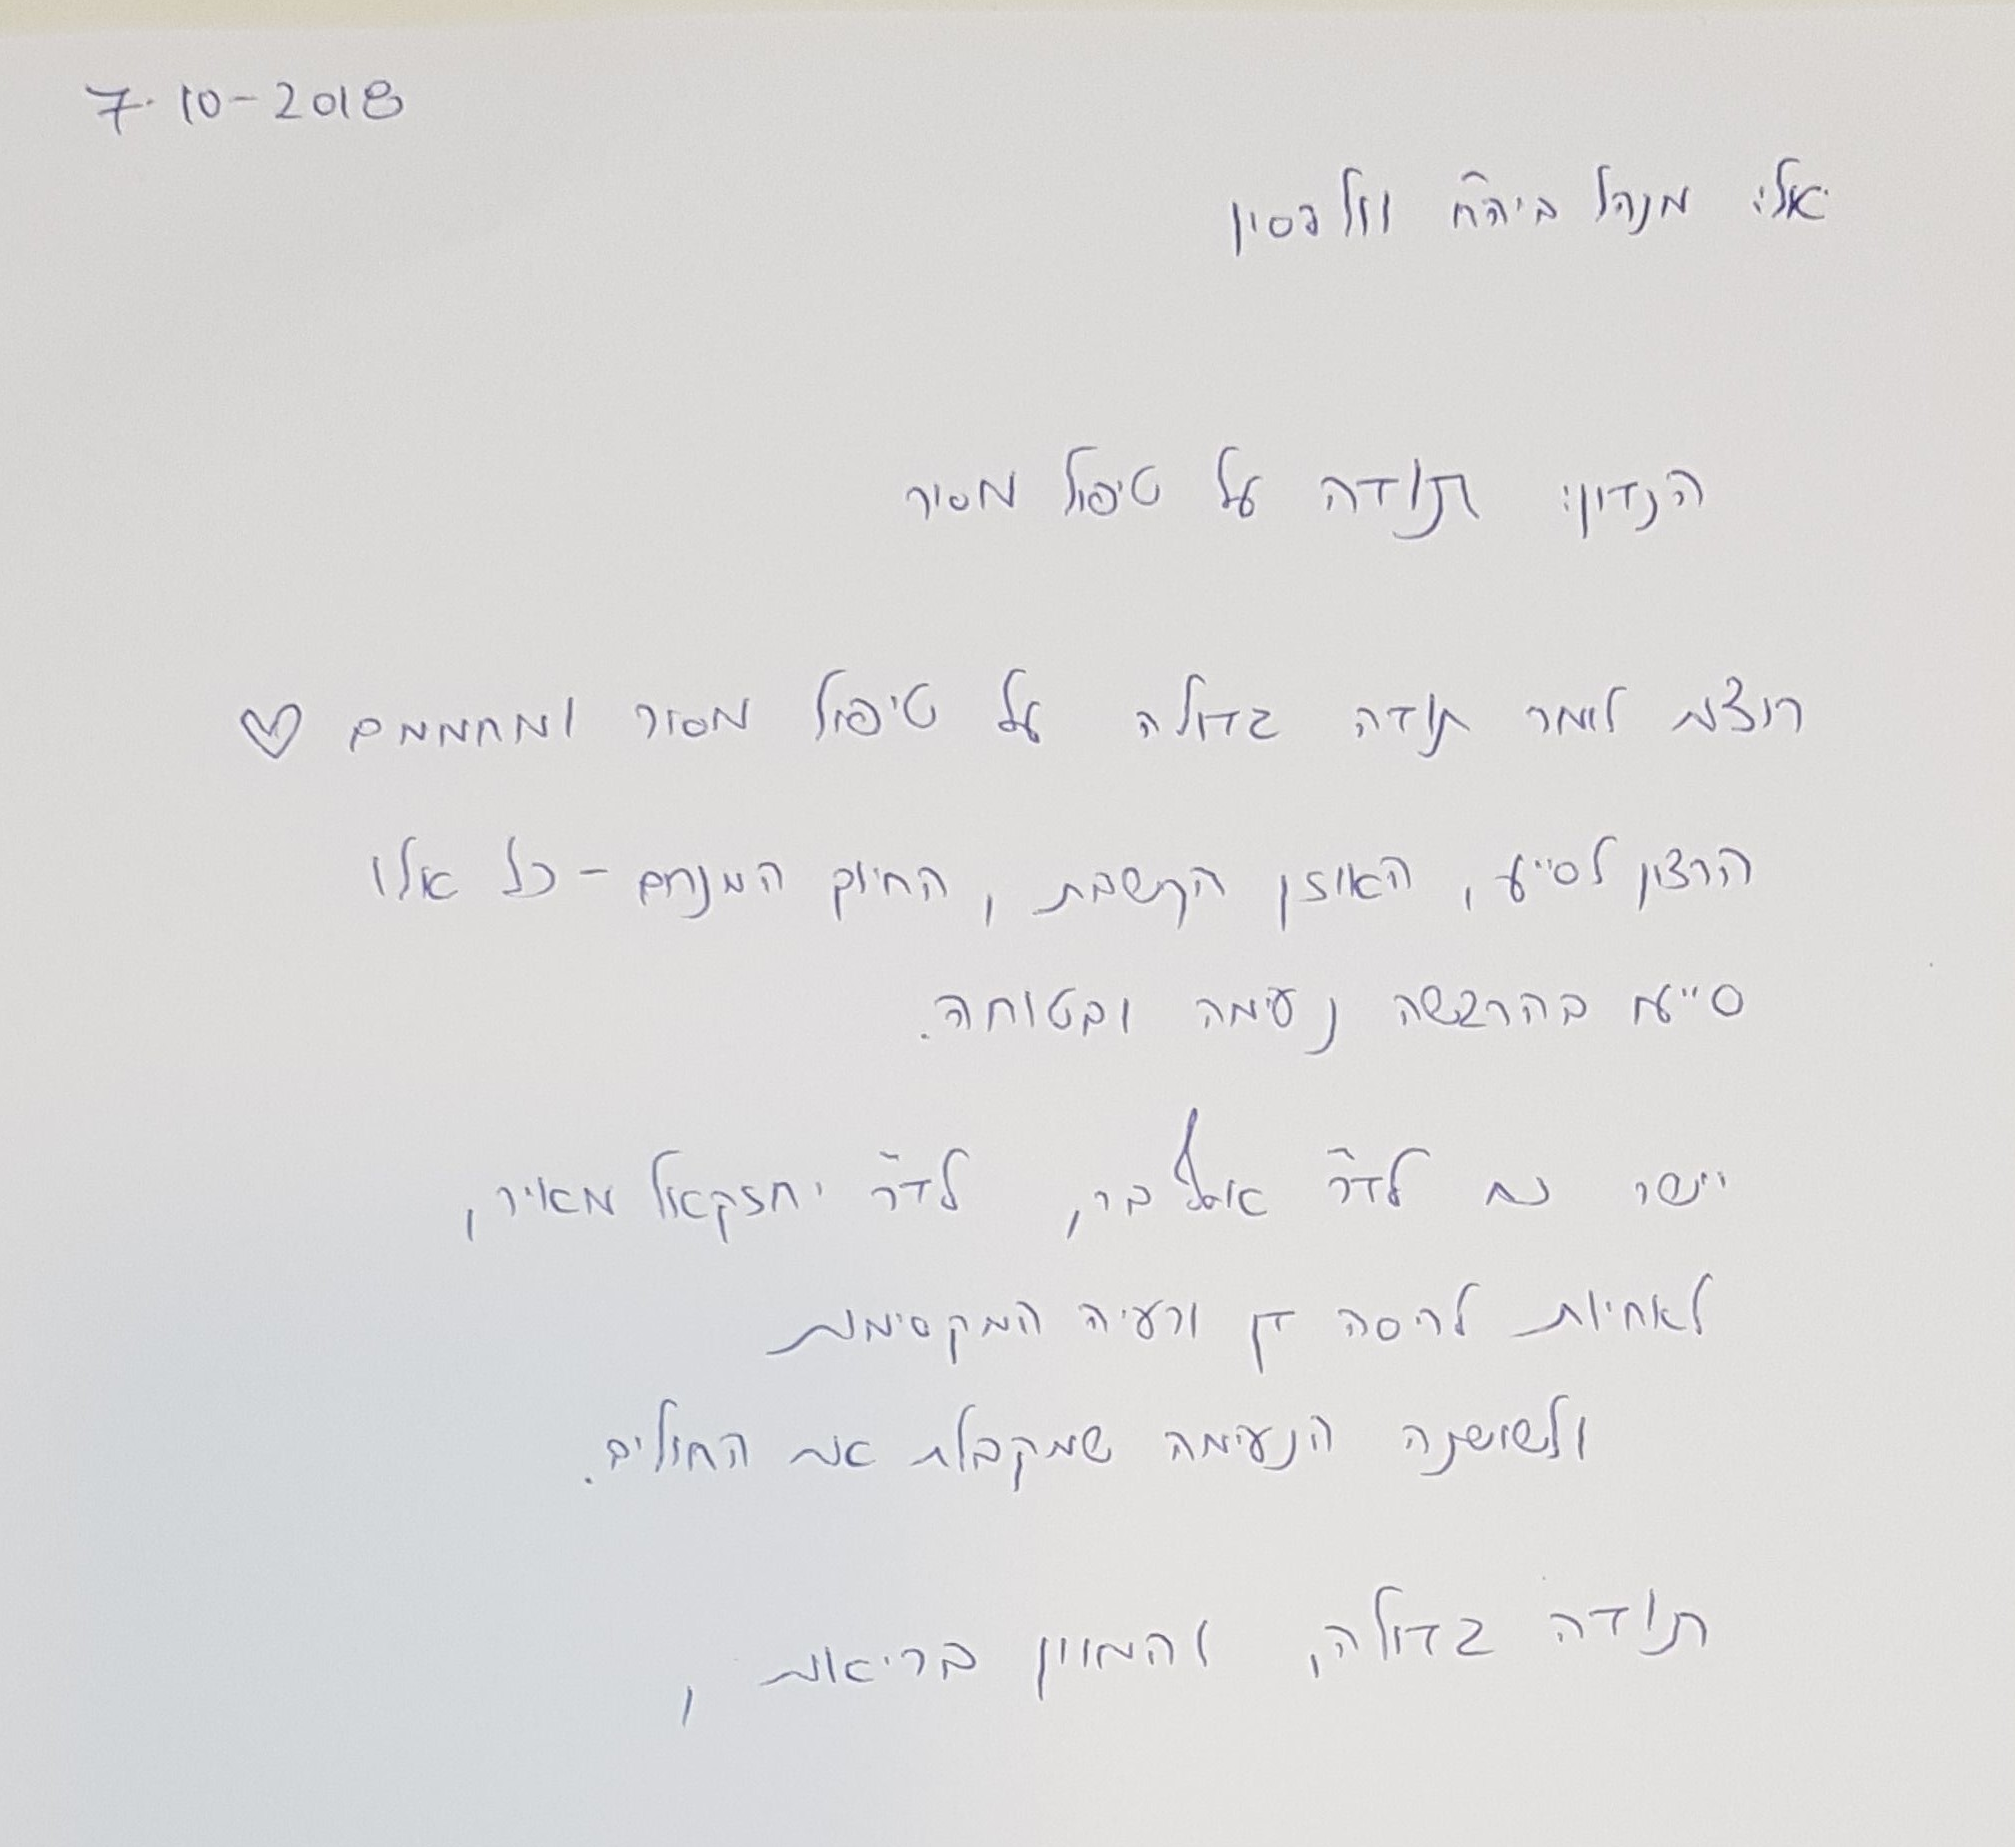 7.10-2018
אל: מנהל ביה"ח וולפסון
הנדון: תודה על טיפול מסור
רוצה לומר תודה גדולה על טיפול מסור ומחממם ♡
הרצון לסייע, האוזן הקשבת, החיוך המנחם - כל אלו
סייעו בהרגשה נעימה ובטוחה.
יישר כח לד"ר בר, לד"ר יחזקאל מאיר,
לאחיות לריסה דן ורעיה המקסימות
ולשושנה הנעימה שמקבלת את החולים.
תודה גדולה, והמון בריאות,